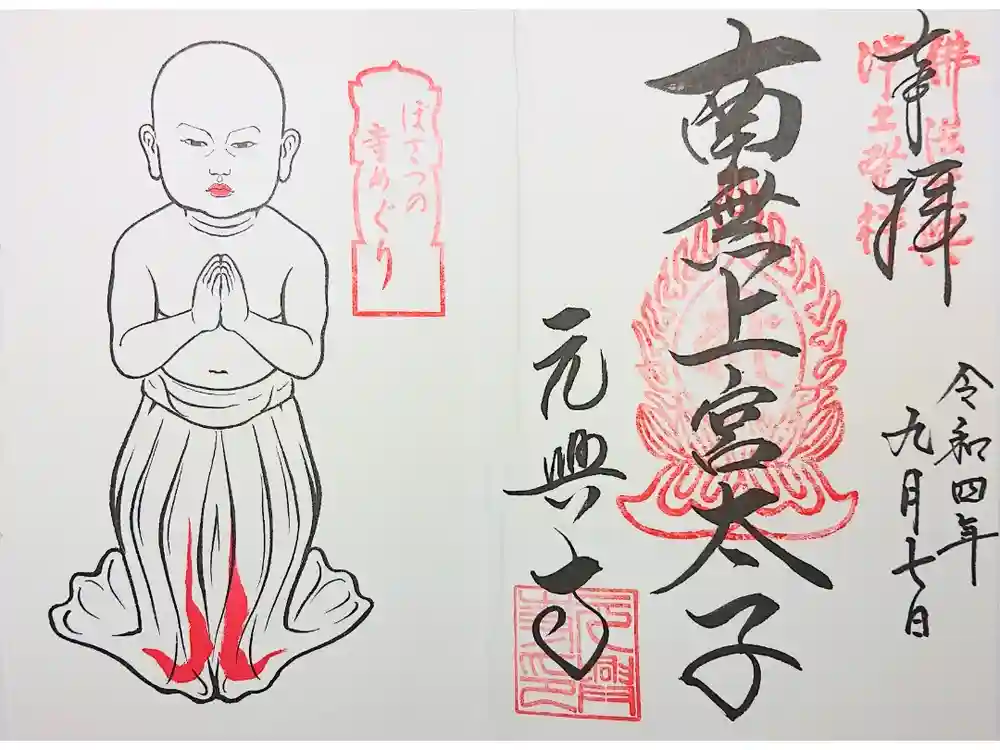 奉拝
令和四年
九月七日
南無上宮太子
元興寺
ぼさつの
寺めぐり